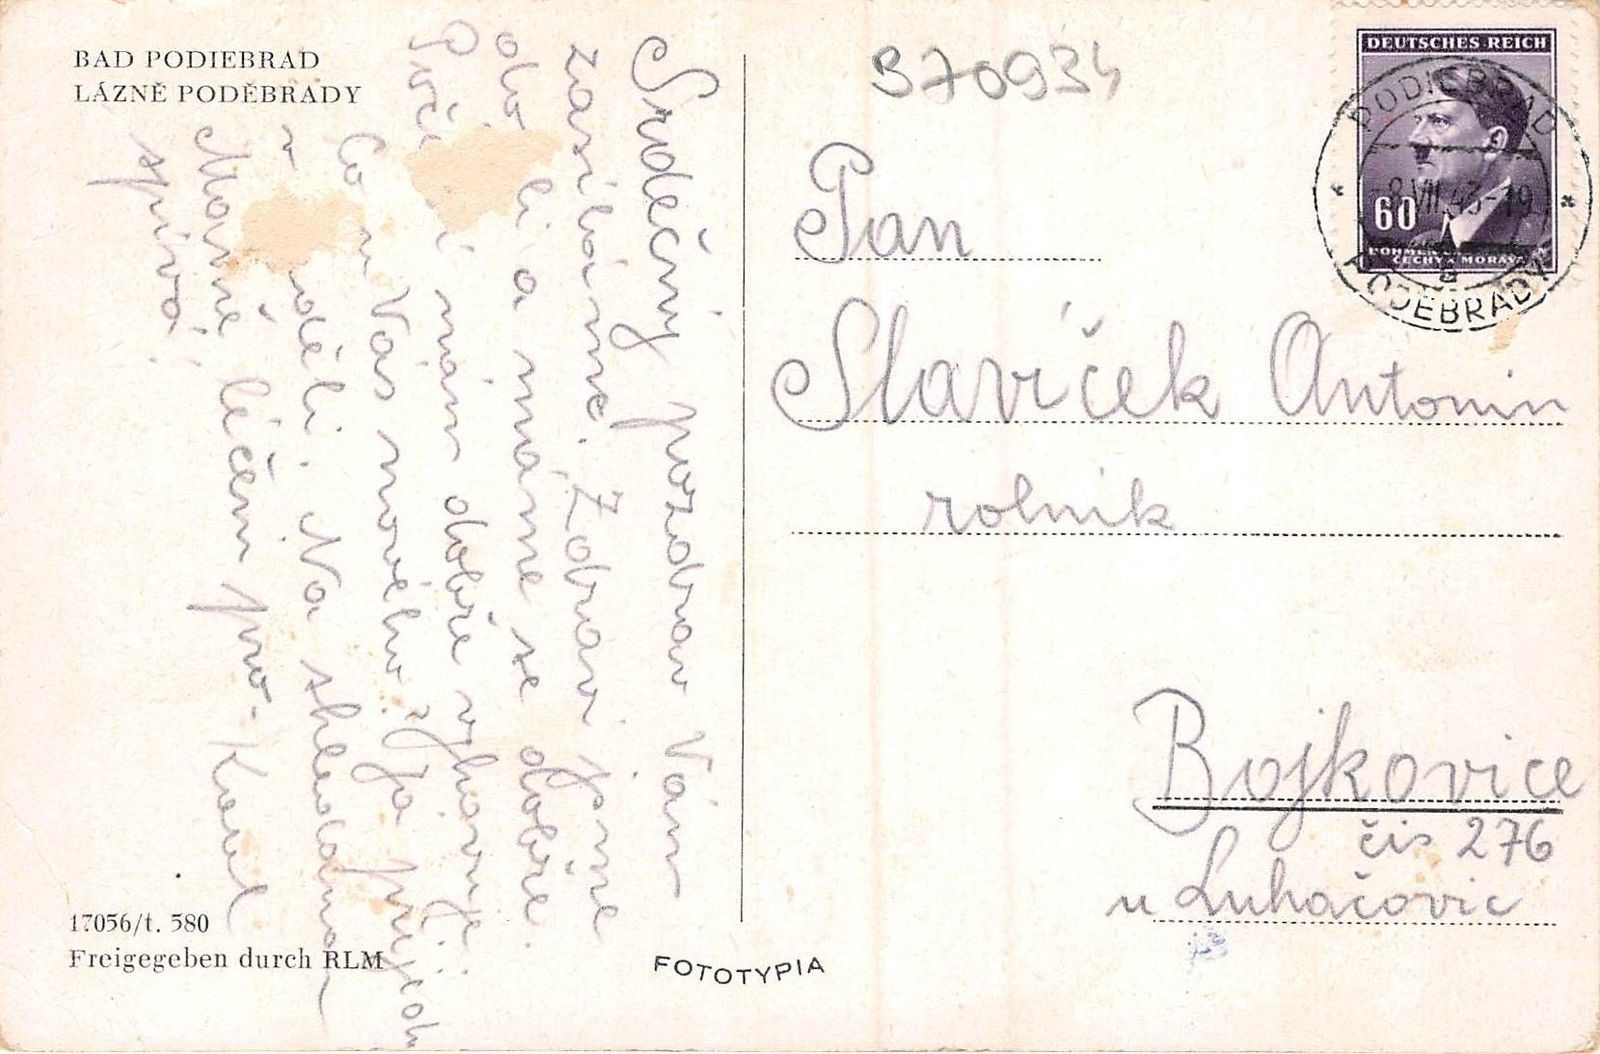 BAD PODIEBRAD
LÁZNĚ PODĚBRADY
Srdečný pozdrav Vám
zasíláme. Zdravi jsme
oba i a máme se dobře.
nám dobře vyhovuje.
Co u Vás nového, Ja prijedu
v děli. Na shledanou
léčem pro- Karel
spívá.
17056/t. 580
Freigegeben durch RLM
FOTOTYPIA
370934
DEUTSCHES REICH
60
BÖHMEN
ČECHY A MORAVA
PODIEBRAD
-8.VII.43-19
PODĚBRADY
Pan
Slavíček Antonin
rolnik
Bojkovice
čis 276
u Luhačovic